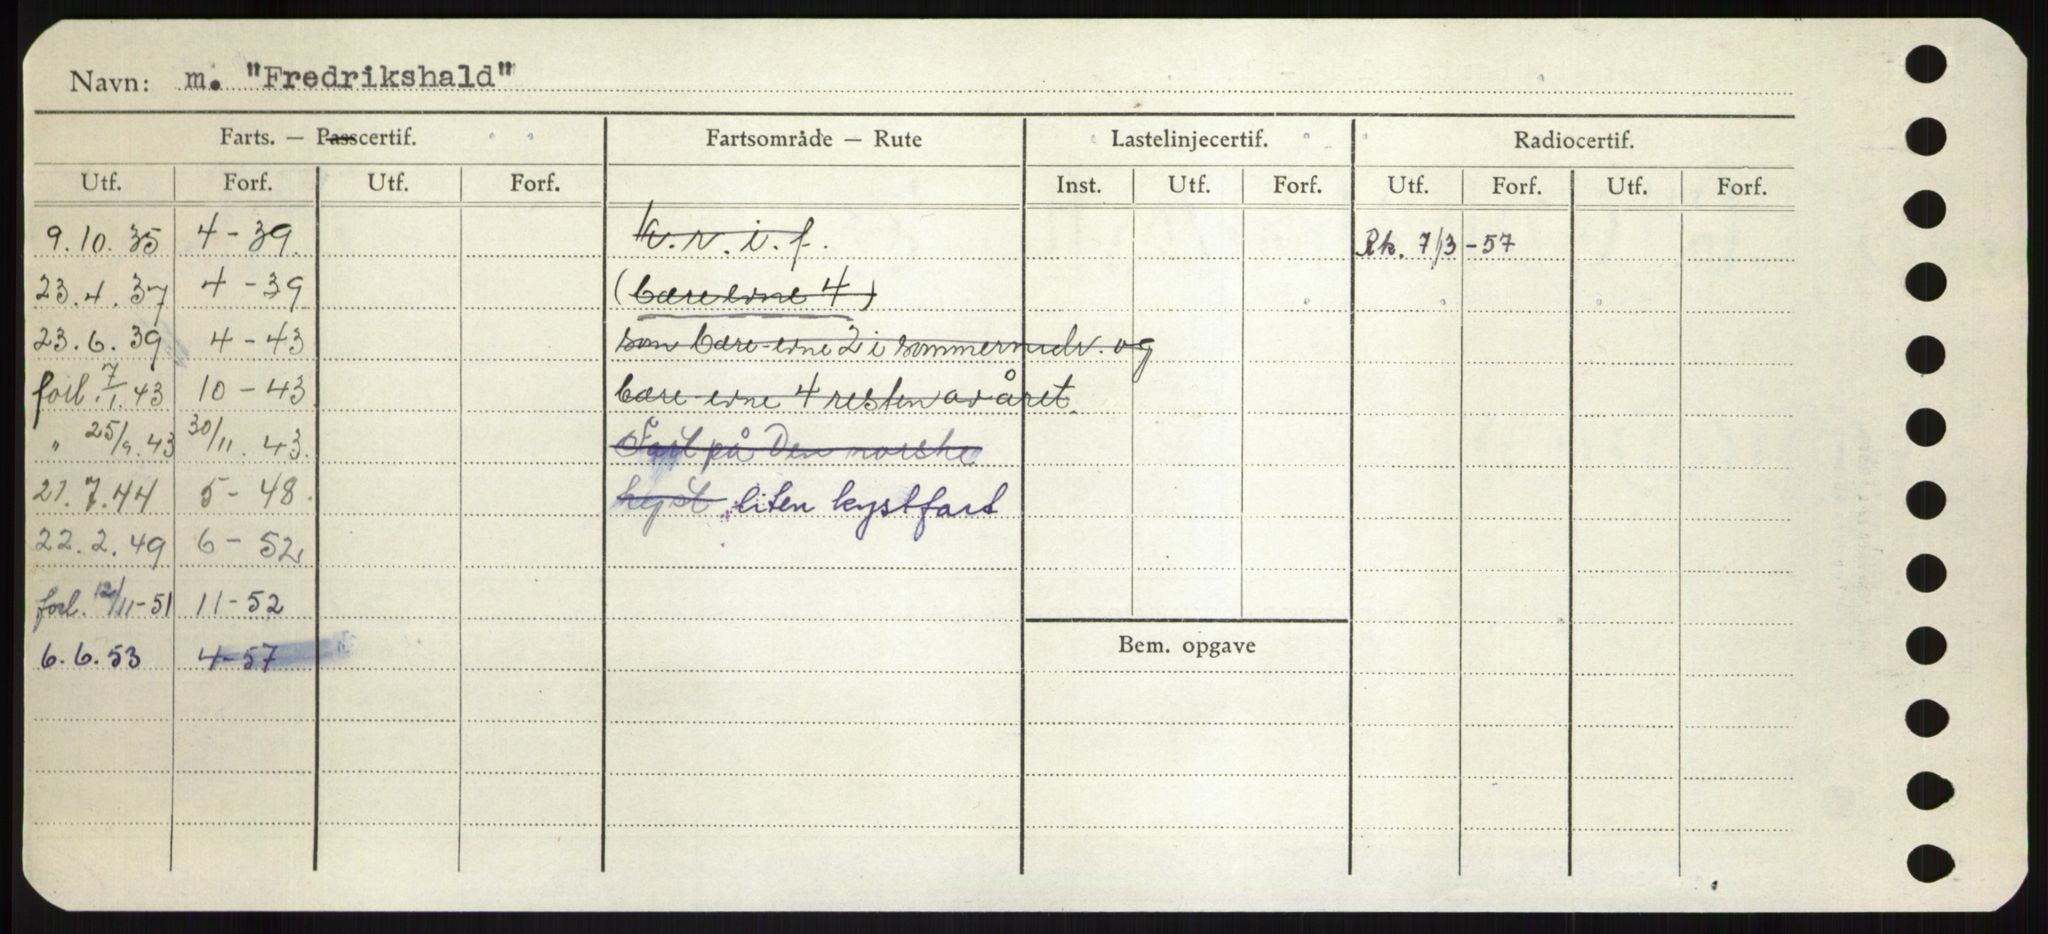 Navn: m. "Fredrikshald"
Farts. — Passcertif. Fartsområde — Rute Lastelinjecertif. Radiocertif.
Utf. Forf. Utf. Forf. Inst. Utf. Forf. Utf. Forf. Utf. Forf.
9.10.35 4-39. k.v.i.f. Rk. 7/3-57
23.4.37 4-39 (bæreevne 4)
23.6.39 4-43 som bære-evne 2 i sommermndr. og
forl. 7/1.43 10-43 bære-evne 4 resten av året.
" 25/9.43 30/11.43. Fart på Den norske
21.7.44 5-48. kyst liten kystfart
22.2.49 6-52
forl. 12/11-51 11-52
6.6.53 4-57
Bem. opgave